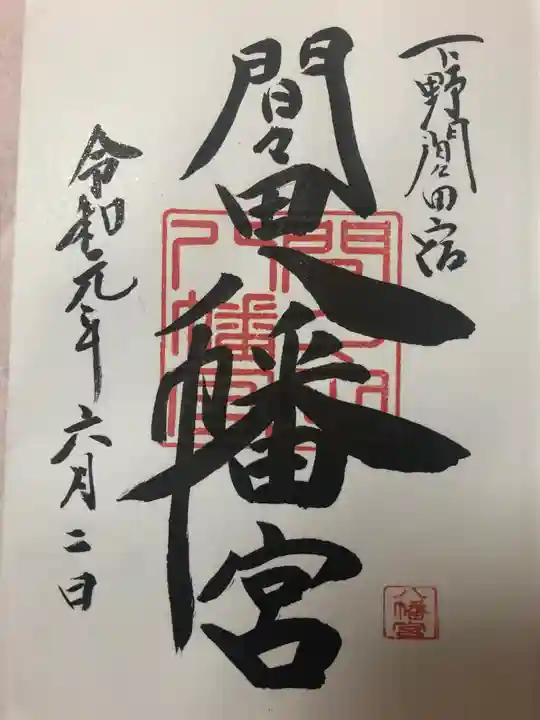 下野間々田宿
間々田八幡宮
令和元年六月二日
間々田八幡宮
八幡宮